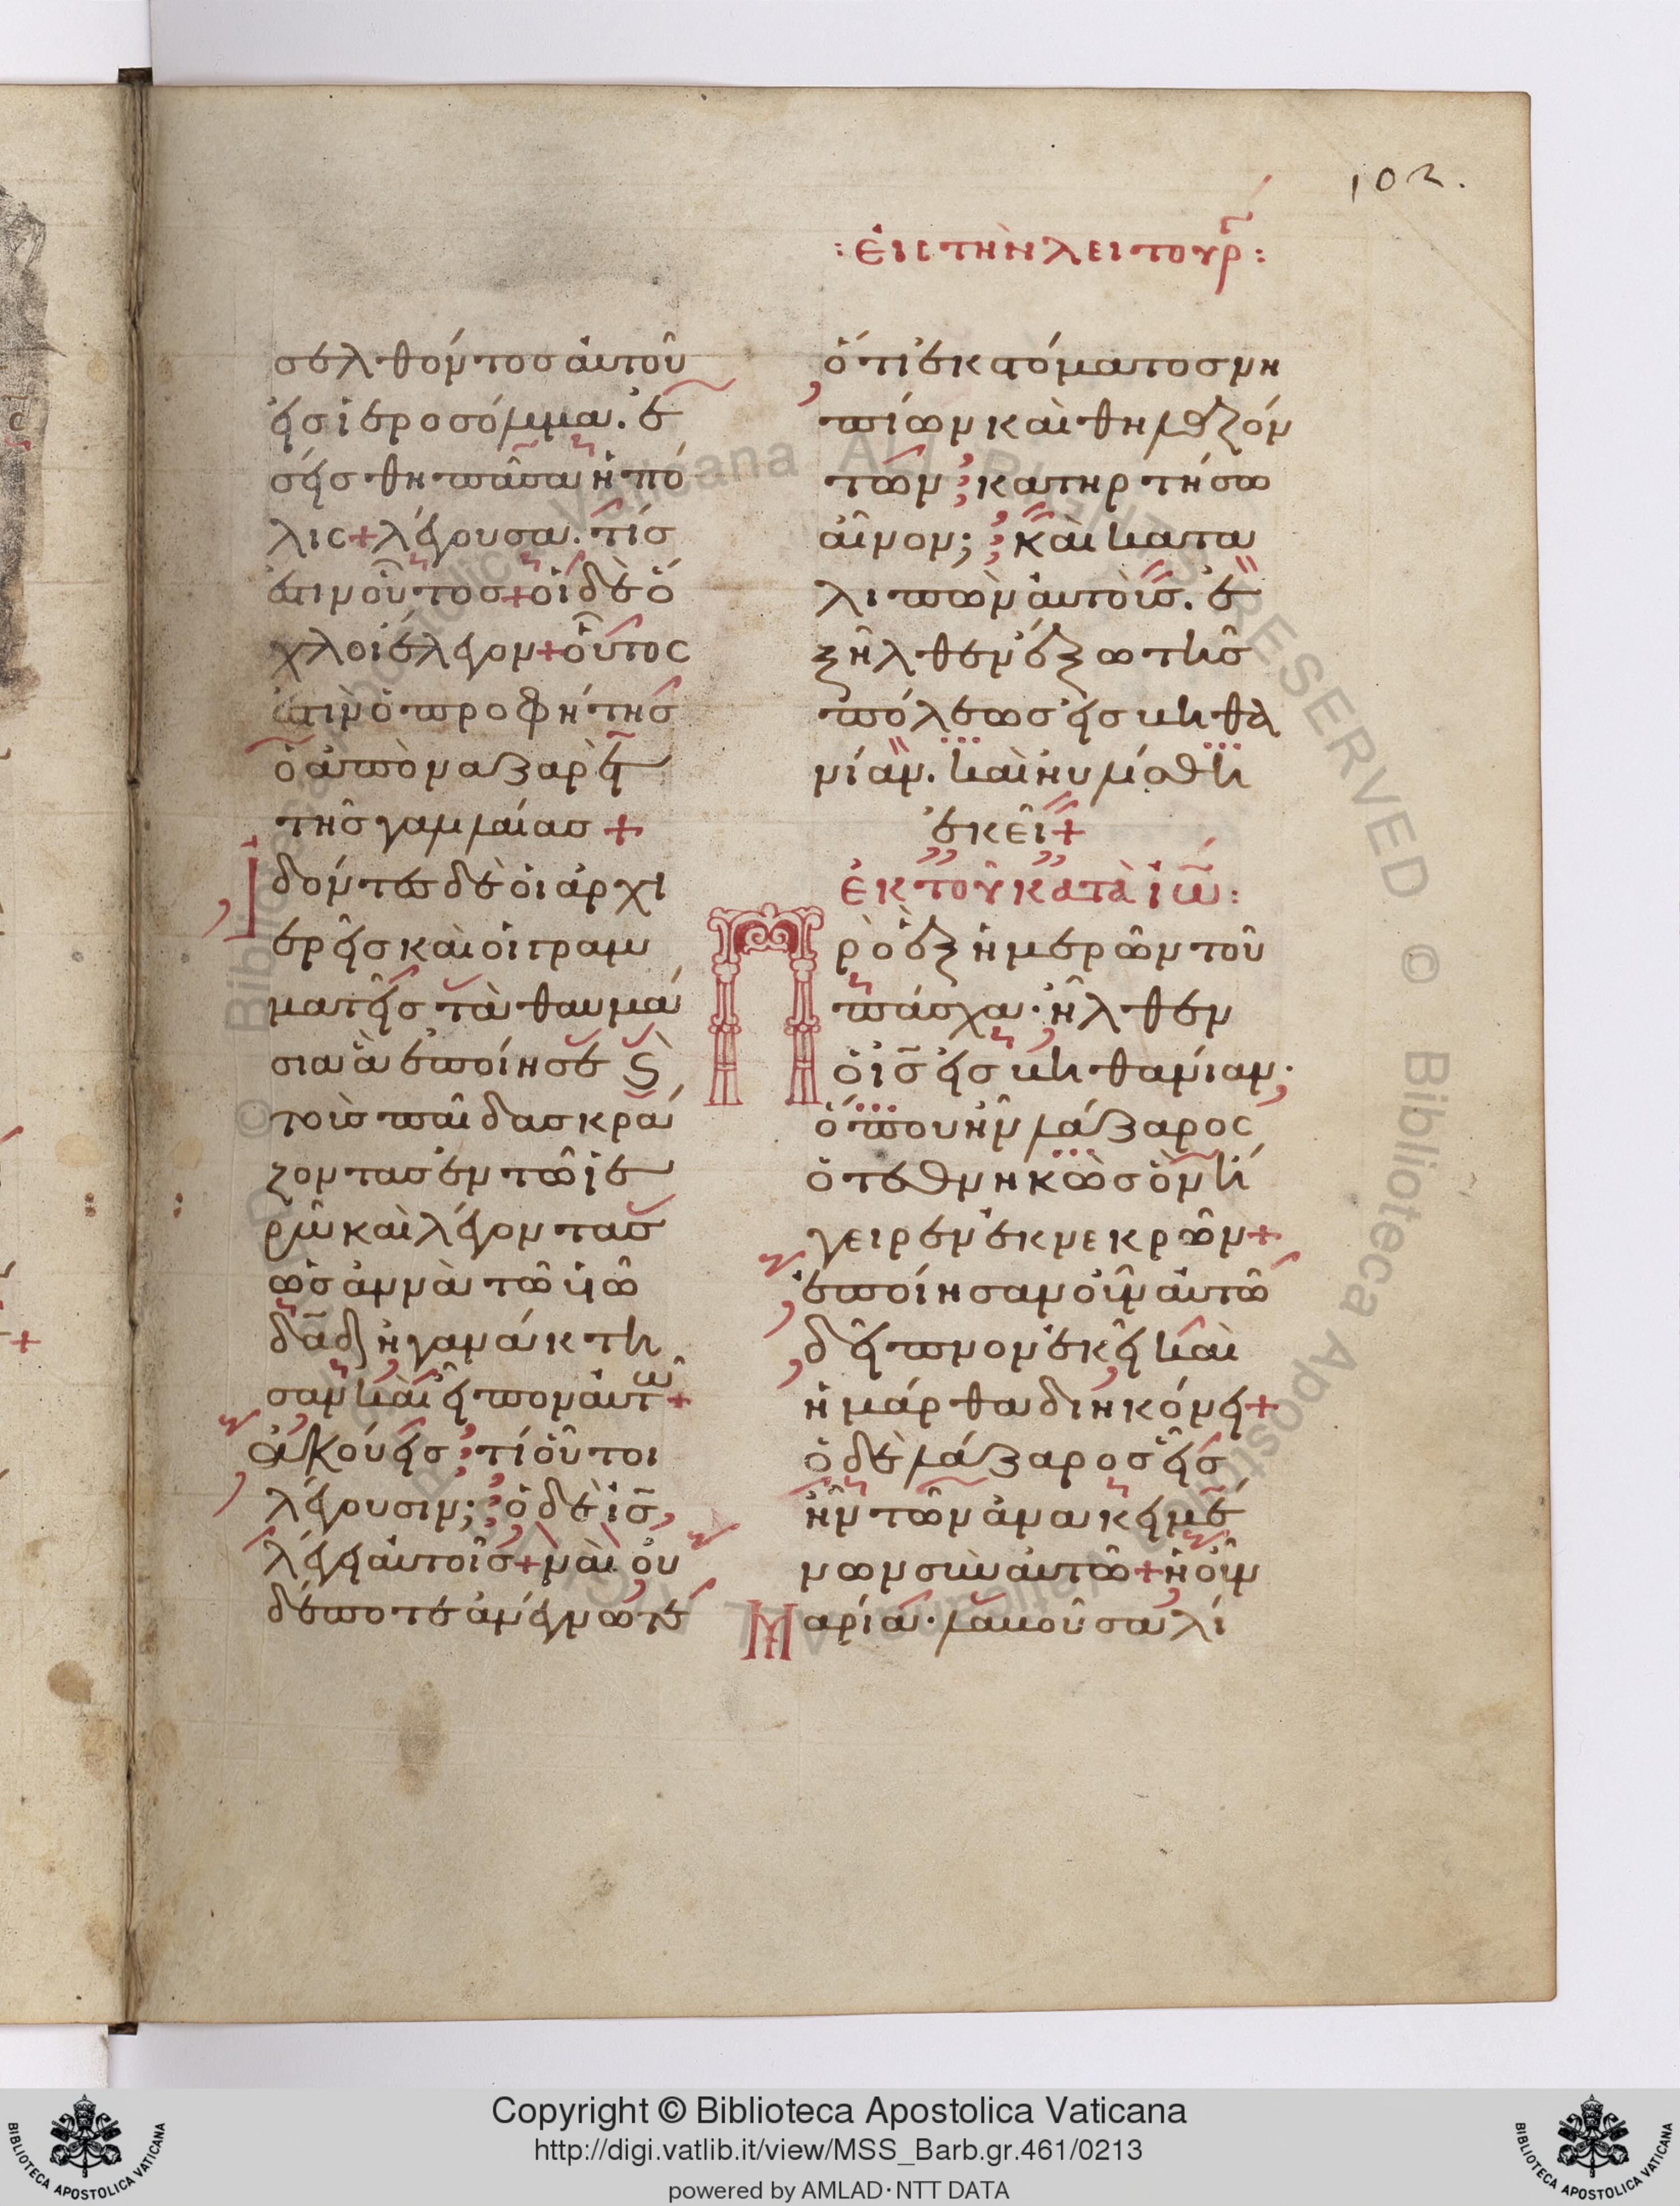 102.
: Εἰς τὴν λειτουρ :
σελθόντος αὐτοῦ
εἰς ἱεροσόλυμα. ἐ
σείσθη πᾶσα ἡ πό
λις + λέγουσα. τίς
ἐστιν οὗτος + οἱ δὲ ὄ
χλοι ἔλεγον + οὗτος
ἐστιν ὁ προφήτης
ὁ ἀπὸ ναζαρὲτ
τῆς γαλιλαίας +
Ἰδόντες δὲ οἱ ἀρχι
ερεῖς καὶ οἱ γραμ
ματεῖς τὰ θαυμά
σια ἃ ἐποίησε ϗ
τοὺς παῖδας κρά
ζοντας ἐν τῷ ἱε
ρῷ καὶ λέγοντας
ὡσαννὰ τῷ υἱῷ
δᾱδ ἠγανάκτη
σαν καὶ εἶπον αὐτῶ +
ἀκούεις τί οὗτοι
λέγουσιν; ὁ δὲ ἰ̄ς̄
λέγει αὐτοῖς + ναὶ οὐ
δέποτε ἀνέγνωτε
ὅτι ἐκ στόματος νη
πίων καὶ θηλαζόν
των κατηρτήσω
αἶνον; καὶ κατα
λιπὼν αὐτοὺς. ἐ
ξῆλθεν ἔξω τῆς
πόλεως εἰς βηθα
νίαν. καὶ ηὐλίσθη
ἐκεῖ +
Ἐκ τοῦ κατὰ ἰω̄ :
Πρὸ ἓξ ἡμερῶν τοῦ
πάσχα· ἦλθεν
ὁ ἰ̄ς̄ εἰς βηθανίαν·
ὅπου ἦν λάζαρος
ὁ τεθνηκὼς ὃν ἤ
γειρεν ἐκ νεκρῶν +
ἐποίησαν οὖν αὐτῶ
δεῖπνον ἐκεῖ καὶ
ἡ μάρθα διηκόνει +
ὁ δὲ λάζαρος εἷς
ἦν τῶν ἀνακειμέ
νων σὺν αὐτῶ + ἡ οὖν
Μαρία· λαβοῦσα λί
Copyright © Biblioteca Apostolica Vaticana
http://digi.vatlib.it/view/MSS_Barb.gr.461/0213
powered by AMLAD·NTT DATA
BIBLIOTECA APOSTOLICA VATICANA
BIBLIOTECA APOSTOLICA VATICANA